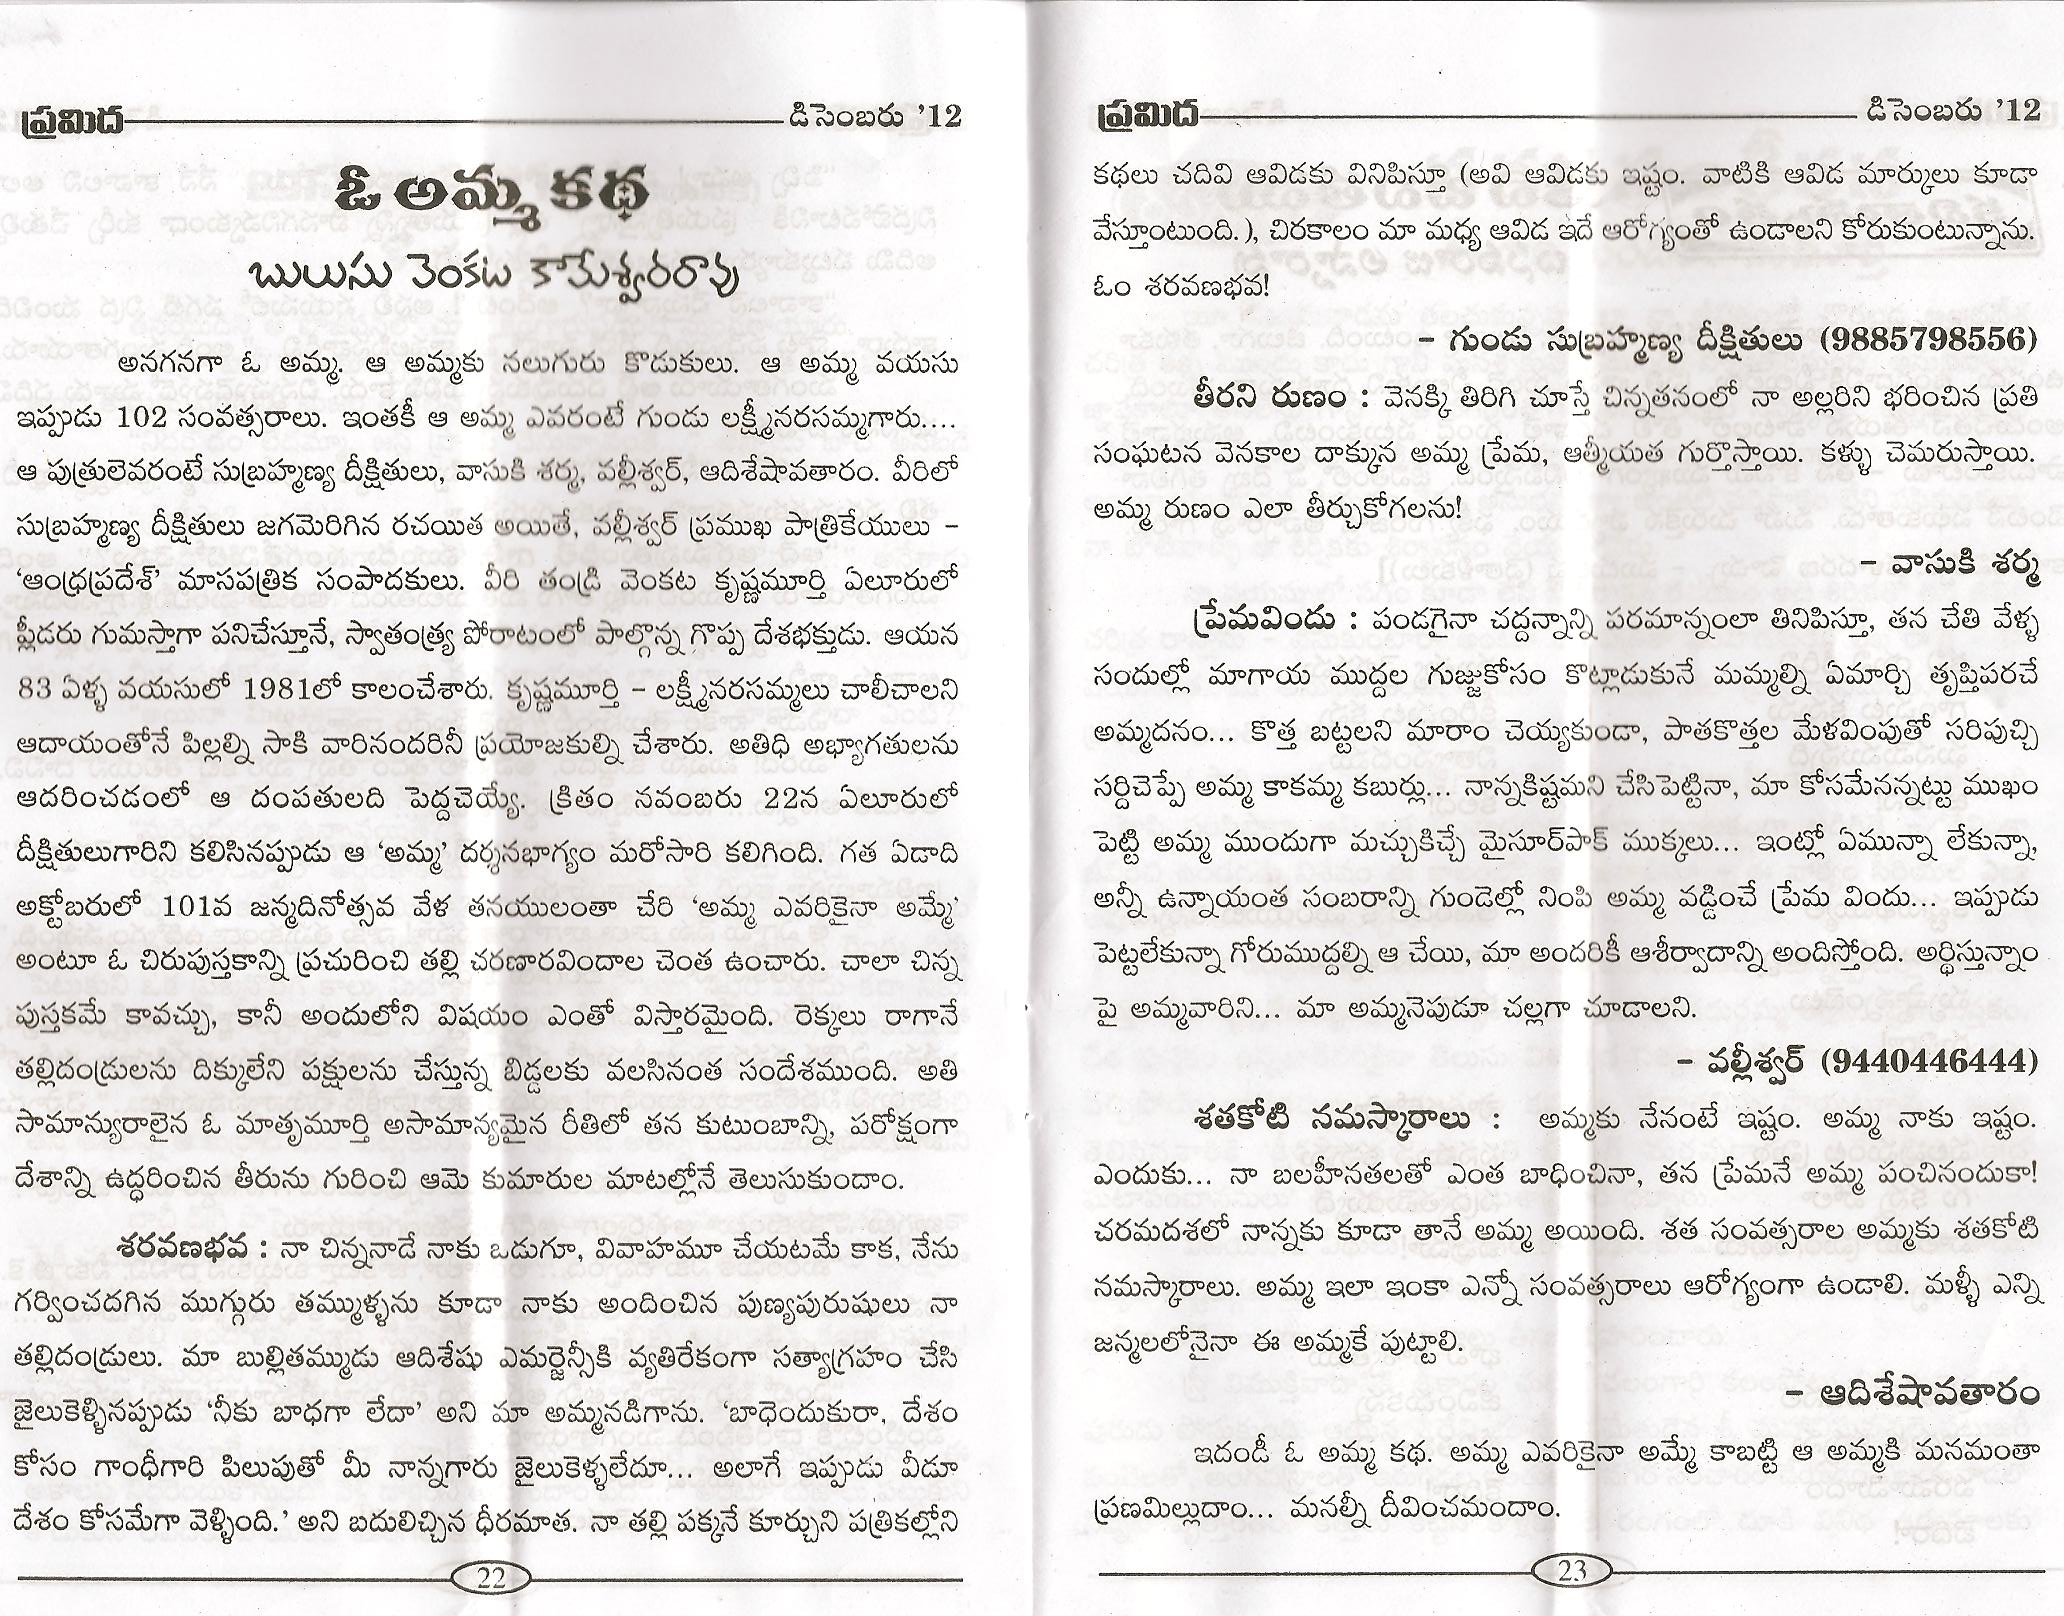 ప్రమిద డిసెంబరు '12
ఓ అమ్మ కథ
బులుసు వెంకట కామేశ్వరరావు
అనగనగా ఓ అమ్మ. ఆ అమ్మకు నలుగురు కొడుకులు. ఆ అమ్మ వయసు
ఇప్పుడు 102 సంవత్సరాలు. ఇంతకీ ఆ అమ్మ ఎవరంటే గుండు లక్ష్మీనరసమ్మగారు....
ఆ పుత్రులెవరంటే సుబ్రహ్మణ్య దీక్షితులు, వాసుకి శర్మ, వల్లీశ్వర్, ఆదిశేషావతారం. వీరిలో
సుబ్రహ్మణ్య దీక్షితులు జగమెరిగిన రచయిత అయితే, వల్లీశ్వర్ ప్రముఖ పాత్రికేయులు –
'ఆంధ్రప్రదేశ్' మాసపత్రిక సంపాదకులు. వీరి తండ్రి వెంకట కృష్ణమూర్తి ఏలూరులో
ప్లీడరు గుమస్తాగా పనిచేస్తూనే, స్వాతంత్ర్య పోరాటంలో పాల్గొన్న గొప్ప దేశభక్తుడు. ఆయన
83 ఏళ్ళ వయసులో 1981లో కాలంచేశారు. కృష్ణమూర్తి – లక్ష్మీనరసమ్మలు చాలీచాలని
ఆదాయంతోనే పిల్లల్ని సాకి వారినందరినీ ప్రయోజకుల్ని చేశారు. అతిధి అభ్యాగతులను
ఆదరించడంలో ఆ దంపతులది పెద్దచెయ్యే. క్రితం నవంబరు 22న ఏలూరులో
దీక్షితులుగారిని కలిసినప్పుడు ఆ 'అమ్మ' దర్శనభాగ్యం మరోసారి కలిగింది. గత ఏడాది
అక్టోబరులో 101వ జన్మదినోత్సవ వేళ తనయులంతా చేరి 'అమ్మ ఎవరికైనా అమ్మే'
అంటూ ఓ చిరుపుస్తకాన్ని ప్రచురించి తల్లి చరణారవిందాల చెంత ఉంచారు. చాలా చిన్న
పుస్తకమే కావచ్చు, కానీ అందులోని విషయం ఎంతో విస్తారమైంది. రెక్కలు రాగానే
తల్లిదండ్రులను దిక్కులేని పక్షులను చేస్తున్న బిడ్డలకు వలసినంత సందేశముంది. అతి
సామాన్యురాలైన ఓ మాతృమూర్తి అసామాన్యమైన రీతిలో తన కుటుంబాన్ని, పరోక్షంగా
దేశాన్ని ఉద్ధరించిన తీరును గురించి ఆమె కుమారుల మాటల్లోనే తెలుసుకుందాం.
శరవణభవ : నా చిన్ననాడే నాకు ఒడుగూ, వివాహమూ చేయటమే కాక, నేను
గర్వించదగిన ముగ్గురు తమ్ముళ్ళను కూడా నాకు అందించిన పుణ్యపురుషులు నా
తల్లిదండ్రులు. మా బుల్లితమ్ముడు ఆదిశేషు ఎమర్జెన్సీకి వ్యతిరేకంగా సత్యాగ్రహం చేసి
జైలుకెళ్ళినప్పుడు 'నీకు బాధగా లేదా' అని మా అమ్మనడిగాను. 'బాధెందుకురా, దేశం
కోసం గాంధీగారి పిలుపుతో మీ నాన్నగారు జైలుకెళ్ళలేదూ... అలాగే ఇప్పుడు వీడూ
దేశం కోసమేగా వెళ్ళింది.' అని బదులిచ్చిన ధీరమాత. నా తల్లి పక్కనే కూర్చుని పత్రికల్లోని
22
ప్రమిద డిసెంబరు '12
కథలు చదివి ఆవిడకు వినిపిస్తూ (అవి ఆవిడకు ఇష్టం. వాటికి ఆవిడ మార్కులు కూడా
వేస్తూంటుంది.), చిరకాలం మా మధ్య ఆవిడ ఇదే ఆరోగ్యంతో ఉండాలని కోరుకుంటున్నాను.
ఓం శరవణభవ!
– గుండు సుబ్రహ్మణ్య దీక్షితులు (9885798556)
తీరని రుణం : వెనక్కి తిరిగి చూస్తే చిన్నతనంలో నా అల్లరిని భరించిన ప్రతి
సంఘటన వెనకాల దాక్కున అమ్మ ప్రేమ, ఆత్మీయత గుర్తొస్తాయి. కళ్ళు చెమరుస్తాయి.
అమ్మ రుణం ఎలా తీర్చుకోగలను!
– వాసుకి శర్మ
ప్రేమవిందు : పండగైనా చద్దన్నాన్ని పరమాన్నంలా తినిపిస్తూ, తన చేతి వేళ్ళ
సందుల్లో మాగాయ ముద్దల గుజ్జుకోసం కొట్లాడుకునే మమ్మల్ని ఏమార్చి తృప్తిపరచే
అమ్మదనం... కొత్త బట్టలని మారాం చెయ్యకుండా, పాతకొత్తల మేళవింపుతో సరిపుచ్చి
సర్దిచెప్పే అమ్మ కాకమ్మ కబుర్లు... నాన్నకిష్టమని చేసిపెట్టినా, మా కోసమేనన్నట్టు ముఖం
పెట్టి అమ్మ ముందుగా మచ్చుకిచ్చే మైసూర్‌పాక్ ముక్కలు... ఇంట్లో ఏమున్నా లేకున్నా,
అన్నీ ఉన్నాయంత సంబరాన్ని గుండెల్లో నింపి అమ్మ వడ్డించే ప్రేమ విందు... ఇప్పుడు
పెట్టలేకున్నా గోరుముద్దల్ని ఆ చేయి, మా అందరికీ ఆశీర్వాదాన్ని అందిస్తోంది. అర్థిస్తున్నాం
పై అమ్మవారిని... మా అమ్మనెపుడూ చల్లగా చూడాలని.
– వల్లీశ్వర్ (9440446444)
శతకోటి నమస్కారాలు : అమ్మకు నేనంటే ఇష్టం. అమ్మ నాకు ఇష్టం.
ఎందుకు... నా బలహీనతలతో ఎంత బాధించినా, తన ప్రేమనే అమ్మ పంచినందుకా!
చరమదశలో నాన్నకు కూడా తానే అమ్మ అయింది. శత సంవత్సరాల అమ్మకు శతకోటి
నమస్కారాలు. అమ్మ ఇలా ఇంకా ఎన్నో సంవత్సరాలు ఆరోగ్యంగా ఉండాలి. మళ్ళీ ఎన్ని
జన్మలలోనైనా ఈ అమ్మకే పుట్టాలి.
– ఆదిశేషావతారం
ఇదండీ ఓ అమ్మ కథ. అమ్మ ఎవరికైనా అమ్మే కాబట్టి ఆ అమ్మకి మనమంతా
ప్రణమిల్లుదాం... మనల్నీ దీవించమందాం.
23